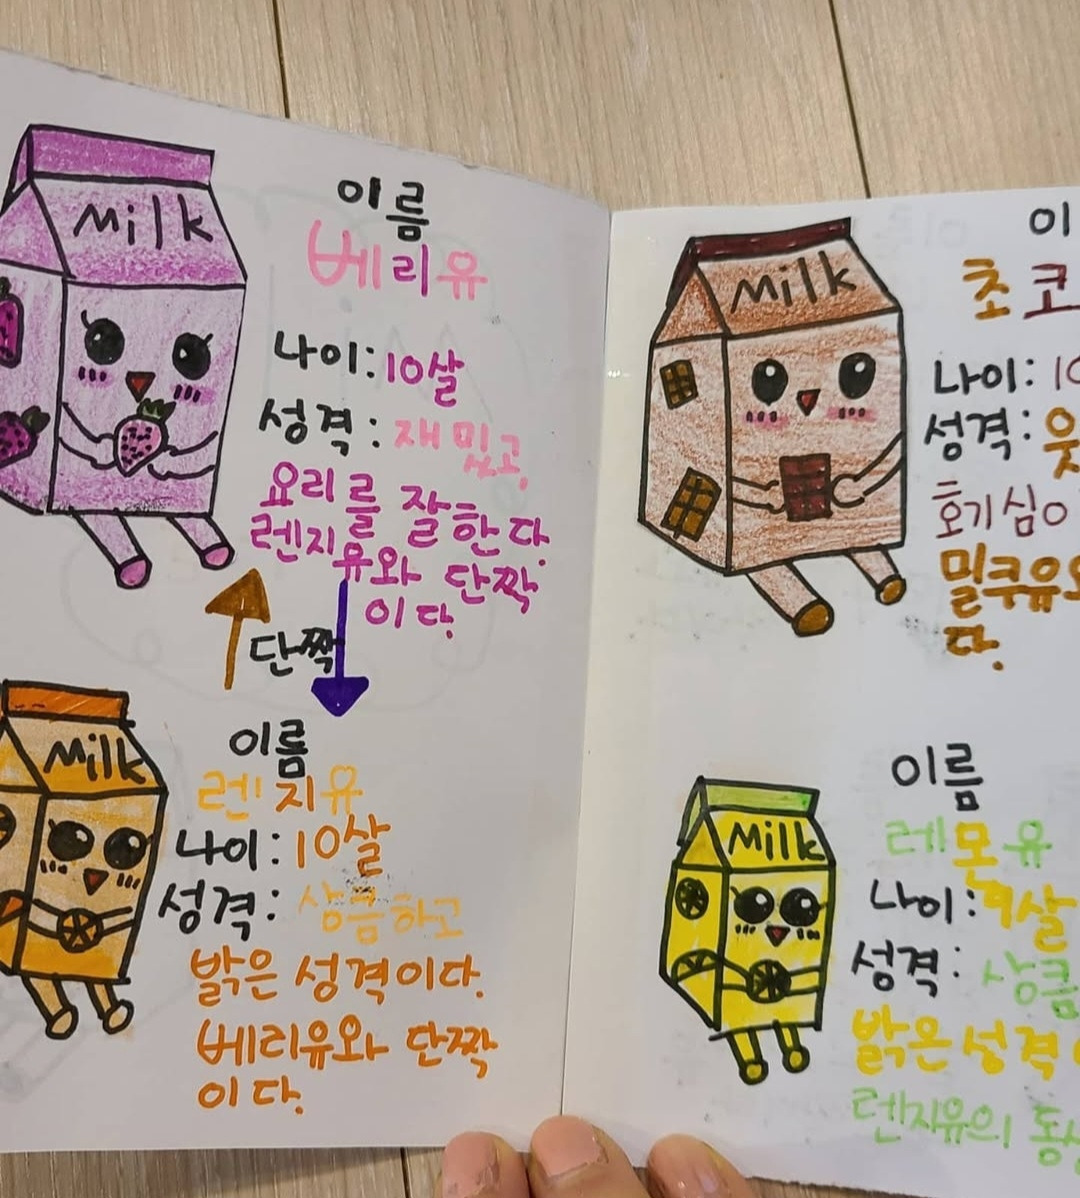 Milk
이름
베리유
나이: 10살
성격: 재밌고
요리를 잘한다.
렌지유와 단짝
이다.
단짝
Milk
이름
렌지유
나이: 10살
성격: 상큼하고
밝은 성격이다.
베리유와 단짝
이다.
Milk
이
초코
나이: 10
성격:
호기심이
밀쿠유와
다.
Milk
이름
레몬유
나이: 9살
성격: 상큼
밝은 성격
렌지유의 동생